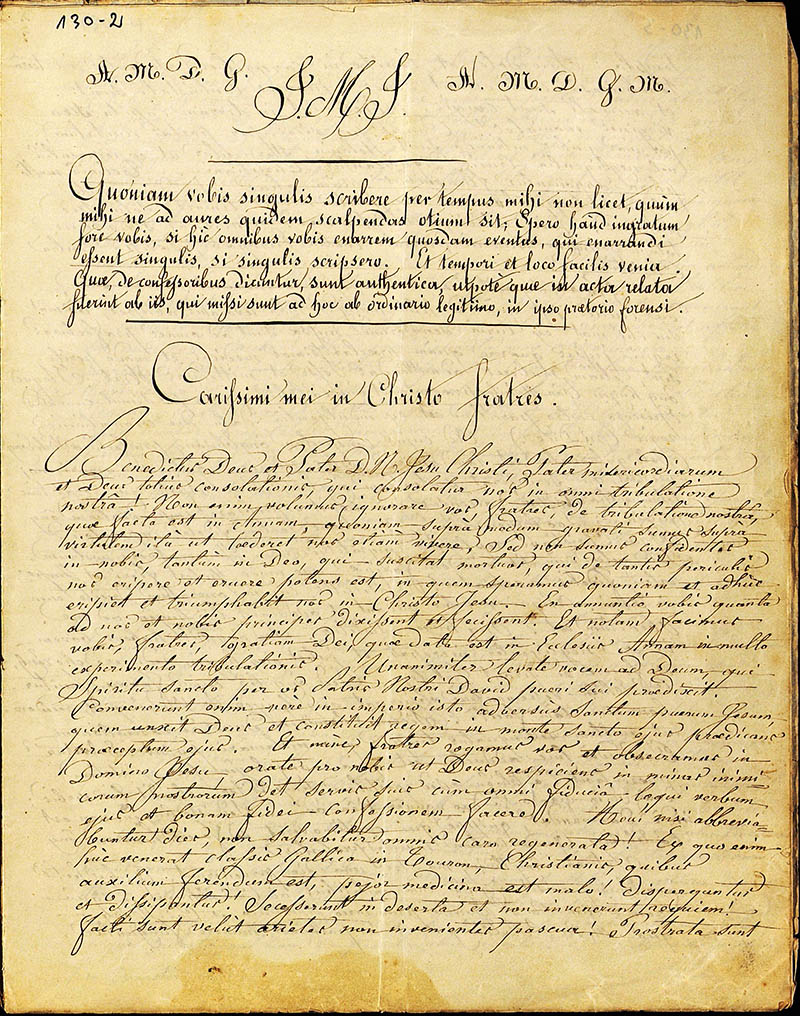 130-2
A. M. D. G. J. M. J. A. M. D. G. M.
Quoniam vobis singulis scribere per tempus mihi non licet, quum
mihi ne ad aures quidem scalpendas otium sit; Spero haud ingratum
fore vobis, si hic omnibus vobis enarrem quosdam eventus, qui enarrandi
essent singulis, si singulis scripsero. Et tempori et loco facilis venia.
Quæ, de confessoribus dicuntur, sunt authentica, utpotè quæ in acta relata
fuerint ab iis, qui missi sunt ad hoc ab ordinario legitimo, in ipso prætorio forensi.
Carissimi mei in Christo fratres.
Benedictus Deus et Pater D. N. Jesu Christi, Pater misericordiarum
et Deus totius consolationis, qui consolatur nos in omni tribulatione
nostrâ! Non enim volumus ignorare vos fratres, de tribulatione nostrâ,
quæ facta est in quoniam suprà modum gravati sumus suprà
virtutem ità ut tœderet nos etiàm vivere, Sed non sumus confidentes
in nobis, tantùm in Deo, qui suscitat mortuos, qui de tantis periculis
nos eripere et eruere potens est, in quem speramus quoniam et adhùc
eripiet et triumphabit nos in Christo Jesu. En annuntio vobis quanta
ad nos et nobis principes dixissent et fecissent. Et notam facimus
vobis, fratres, gratiam Dei, quæ data est in Ecclesiis Annam in multo
experimento tribulationis. Unanimiter levate vocem ad Deum, qui
Spiritu Sancto per os Patris Nostri David pueri sui prœdixit.
Convenerunt enim verè in imperio isto adversùs Sanctum puerum Jesum,
quem unxit Deus et constituit regem in monte Sancto ejus prædicans
præceptum ejus. Et nunc fratres rogamus vos et obsecramus in
Domino Jesu, orate pro nobis ut Deus respiciens in minas inimi=
corum nostrorum det servis suis cum omni fiduciâ loqui verbum
ejus et bonam fidei confessionem facere. Heu! nisi abbrevia=
buntur dies, non salvabitur omnis caro regenerata! Ex quo enim
hùc venerat classis Gallica in Touron, Christianis, quibus
auxilium ferendum est, pejor medicina est malo! Disperguntur
et dissipantur! Secesserunt in deserta et non invenerunt requiem!
facti sunt velut arietes non invenientes pascua! Prostrata sunt